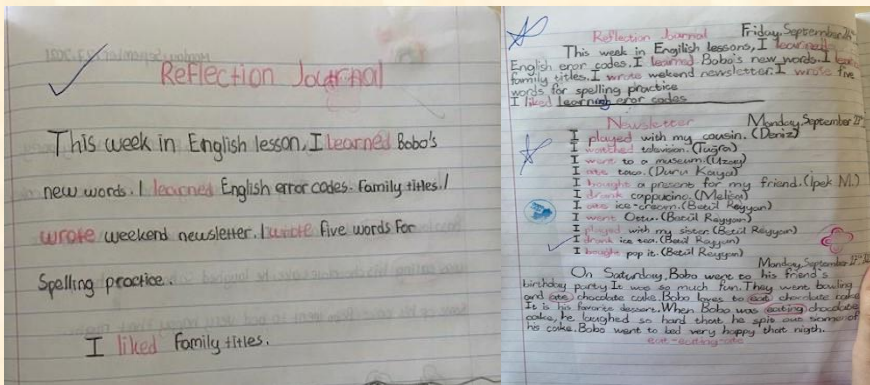 Reflection Journal
This week in English lesson, I learned Bobo's
new words. I learned English error codes. Family titles. I
wrote weekend newsletter. I wrote five words for
Spelling practice.
I liked Family titles.
Reflection Journal Friday, September 24th
This week in Engilish lessons, I learned
English eror codes. I learned Bobo's new words. I learn
family titles. I wrote wekend newsletter. I wrote five
words for spelling practice
I liked learning eror codes
Newsletter Monday, September
I played with my cousin. (Deniz)
I watched television. (Tuğra)
I went to a museum. (Uzay)
I ate taco. (Duru Kaya)
I bought a present for my friend. (Ipek M.)
I drank cappucino. (Melisa)
I ate ice-cream. (Betül Reyyan)
I went Ottu. (Betül Reyyan)
I played with my sister. (Betül Reyyan)
I drank ice tea. (Betül Reyyan)
I bought pop it. (Betül Reyyan)
Monday, September
On Saturday, Bobo went to his friend's
birthday party. It was so much fun. They went bowling
and ate chocolate cake. Bobo loves to eat chocolate cake
It is his favorite dessert. When Bobo was eating chocolate
cake, he laughed so hard that he spit out some of
his cake. Bobo went to bed very happy that nigth.
eat-eating-ate